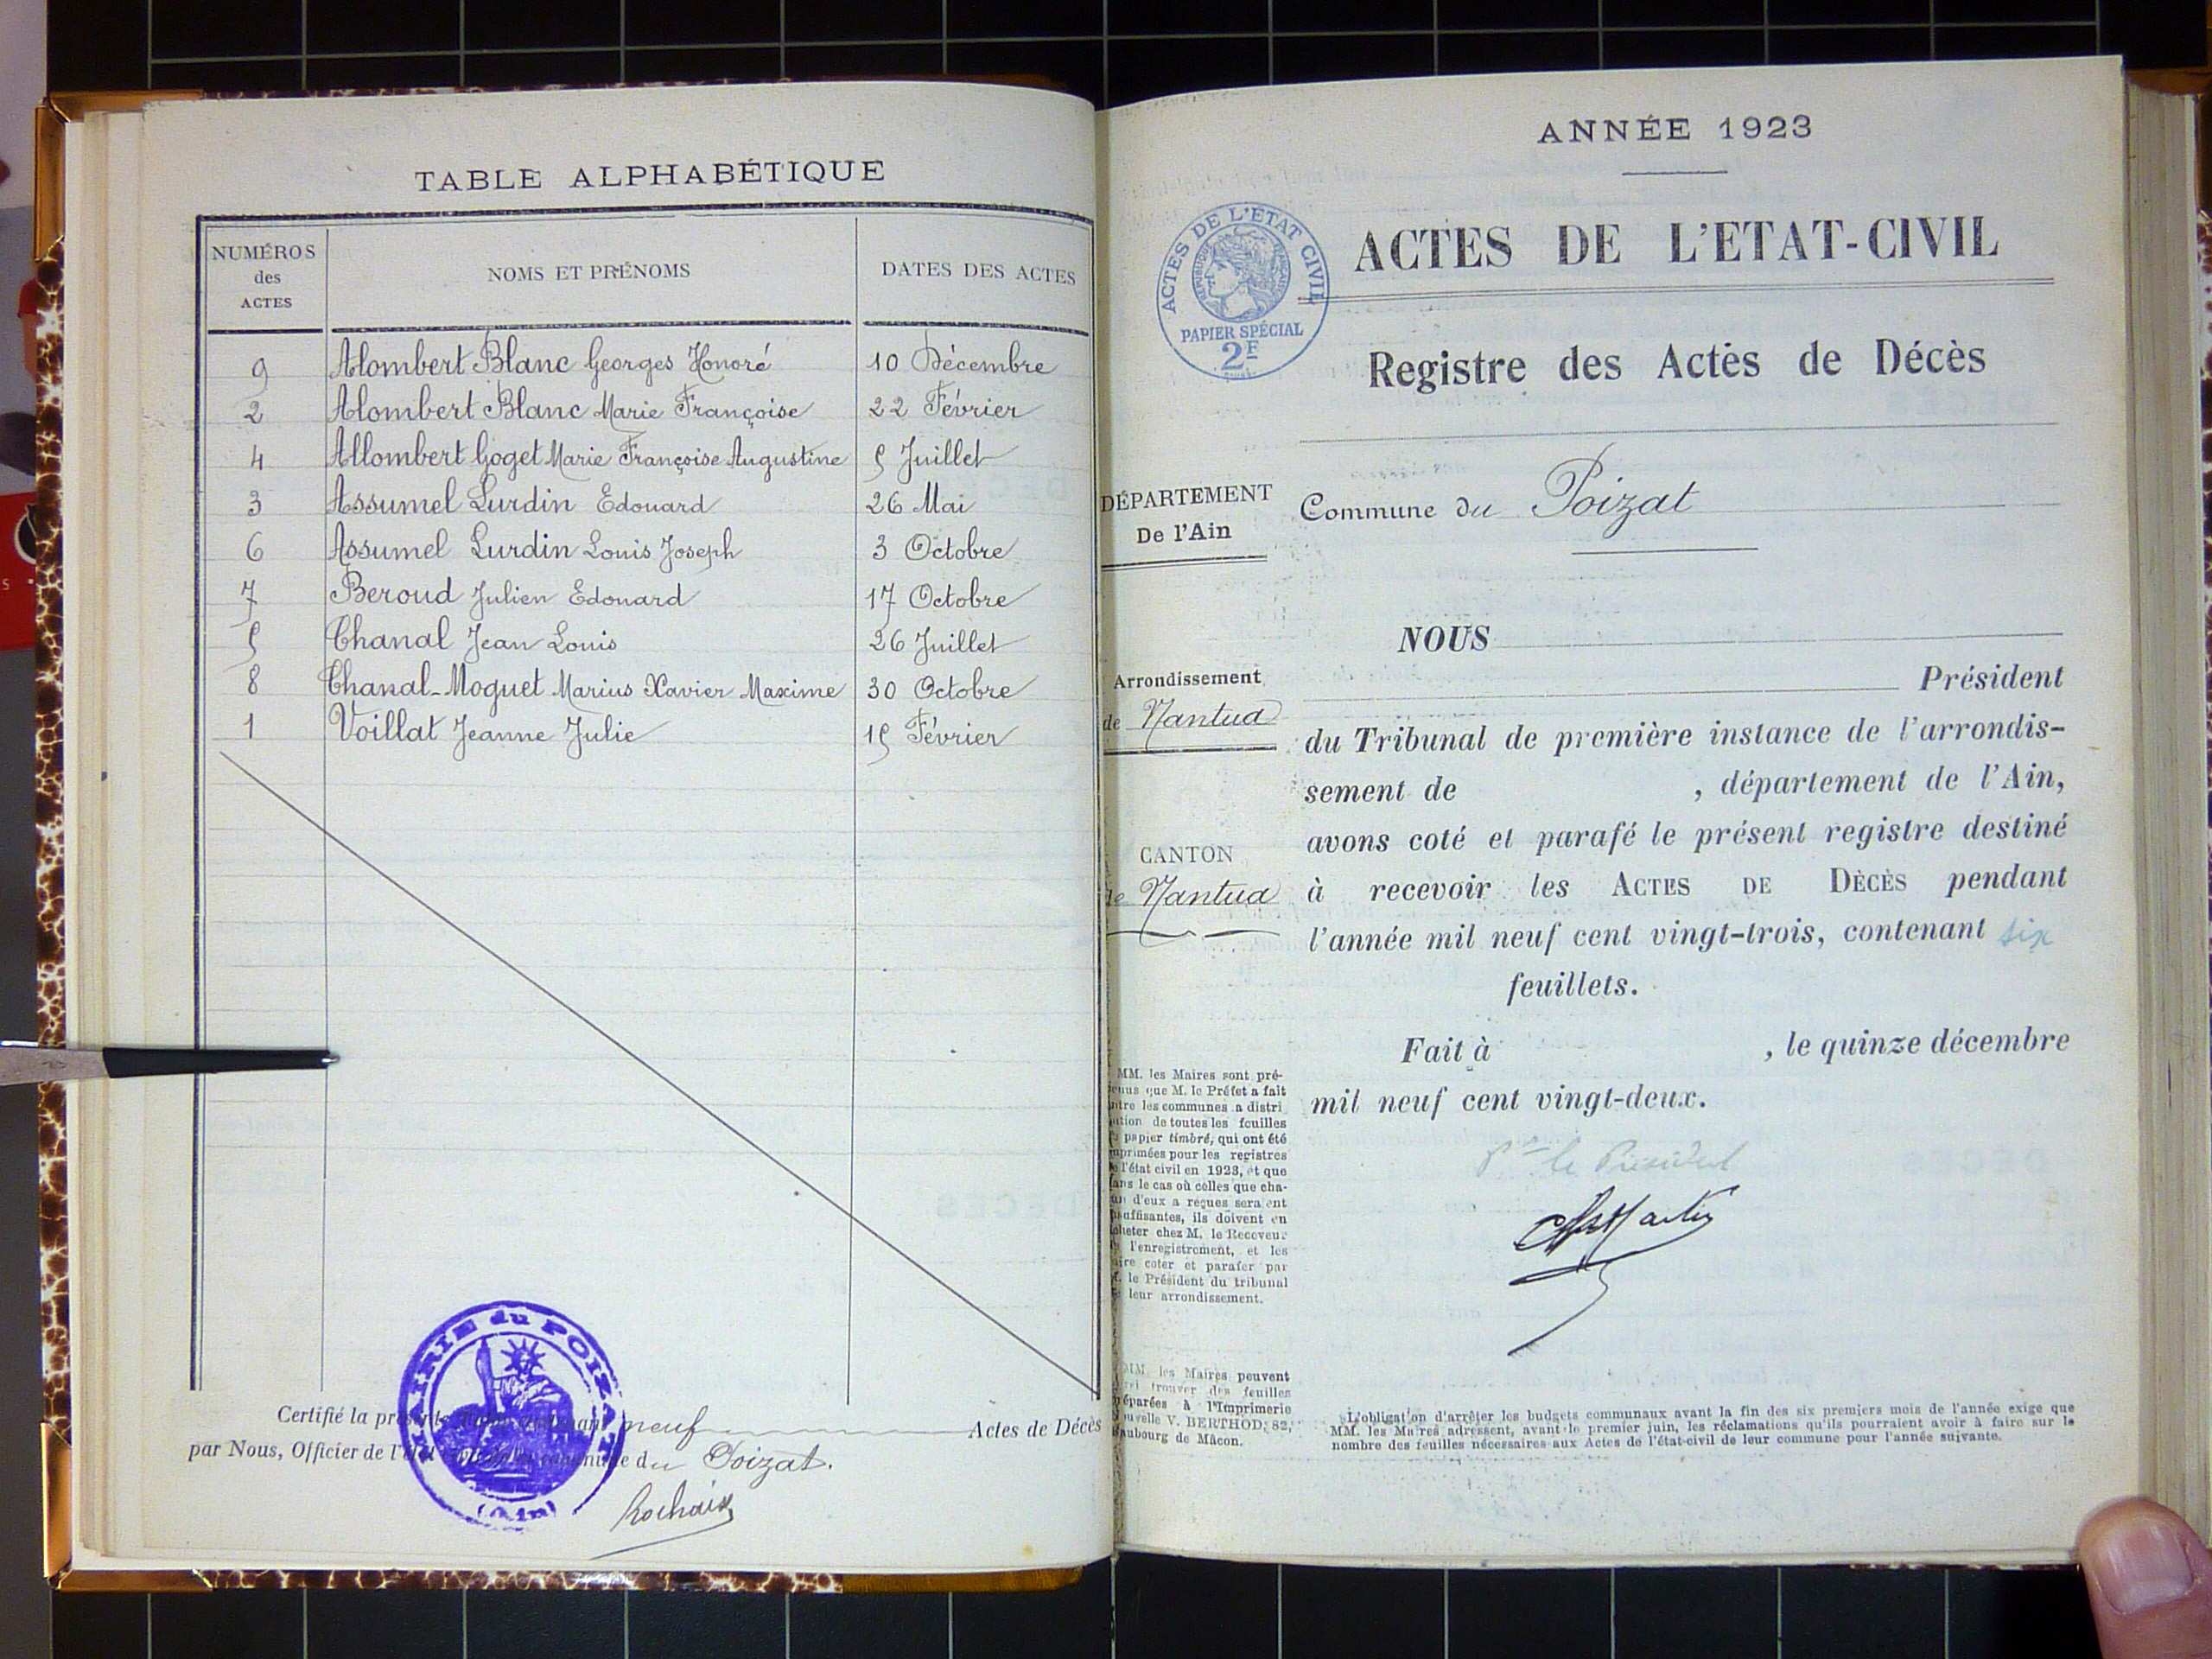 TABLE ALPHABÉTIQUE
NUMÉROS des ACTES
NOMS ET PRÉNOMS
DATES DES ACTES
9 Alombert Blanc Georges Honoré 10 Décembre
2 Alombert Blanc Marie Françoise 22 Février
4 Allombert Goget Marie Françoise Augustine 5 Juillet
3 Assumel Lurdin Edouard 26 Mai
6 Assumel Lurdin Louis Joseph 3 Octobre
7 Beroud Julien Edouard 17 Octobre
5 Chanal Jean Louis 26 Juillet
8 Chanal-Moguet Marius Xavier Maxime 30 Octobre
1 Voillat Jeanne Julie 15 Février
MAIRIE du POIZAT
(Ain)
Certifié la neuf Actes de Décès
par Nous, Officier de du Poizat.
Rochaix
ANNÉE 1923
ACTES DE L'ETAT CIVIL
RÉPUBLIQUE FRANÇAISE
PAPIER SPÉCIAL
2F
ACTES DE L'ETAT-CIVIL
Registre des Actes de Décès
DÉPARTEMENT
De l'Ain
Commune du Poizat
Arrondissement
de Nantua
CANTON
de Nantua
NOUS
Président
du Tribunal de première instance de l'arrondis-
sement de , département de l'Ain,
avons coté et parafé le présent registre destiné
à recevoir les ACTES DE DÉCÈS pendant
l'année mil neuf cent vingt-trois, contenant six
feuillets.
Fait à , le quinze décembre
mil neuf cent vingt-deux.
Pr le Président
MM. les Maires sont pré-
que M. le Préfet a fait
les communes a distri
de toutes les feuilles
papier timbré, qui ont été
pour les registres
l'état civil en 1923, et que
le cas où celles que cha-
d'eux a reçues seraient
ils doivent en
chez M. le Receveur
l'enregistrement, et les
coter et parafer par
le Président du tribunal
leur arrondissement.
MM. les Maires peuvent
trouver des feuilles
à l'Imprimerie
V. BERTHOD, 82,
de Mâcon.
L'obligation d'arrêter les budgets communaux avant la fin des six premiers mois de l'année exige que
MM. les Maires adressent, avant le premier juin, les réclamations qu'ils pourraient avoir à faire sur le
nombre des feuilles nécessaires aux Actes de l'état-civil de leur commune pour l'année suivante.